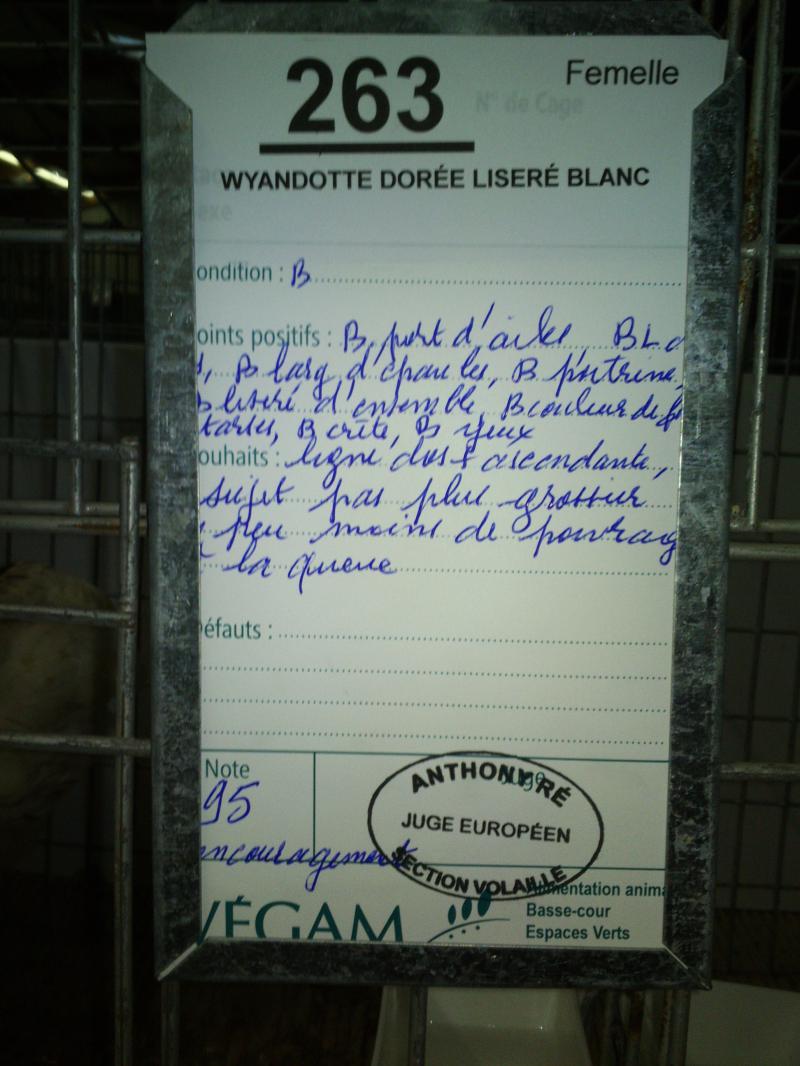 263
Femelle
N° de Cage
WYANDOTTE DORÉE LISERÉ BLANC
exe
ondition : B
oints positifs : B, port d'ailes, B L d
, B larg d'épaules, B poitrine,
B liseré d'ensemble, B couleur de
tarses, B crête, B yeux
ouhaits : ligne dos + ascendante,
sujet pas plus grossier
peu moins de poivrag
à la queue
éfauts :
Note
Juge
95
ncouragement
ANTHONY RÉ
JUGE EUROPÉEN
SECTION VOLAILLE
VÉGAM
Alimentation anima
Basse-cour
Espaces Verts